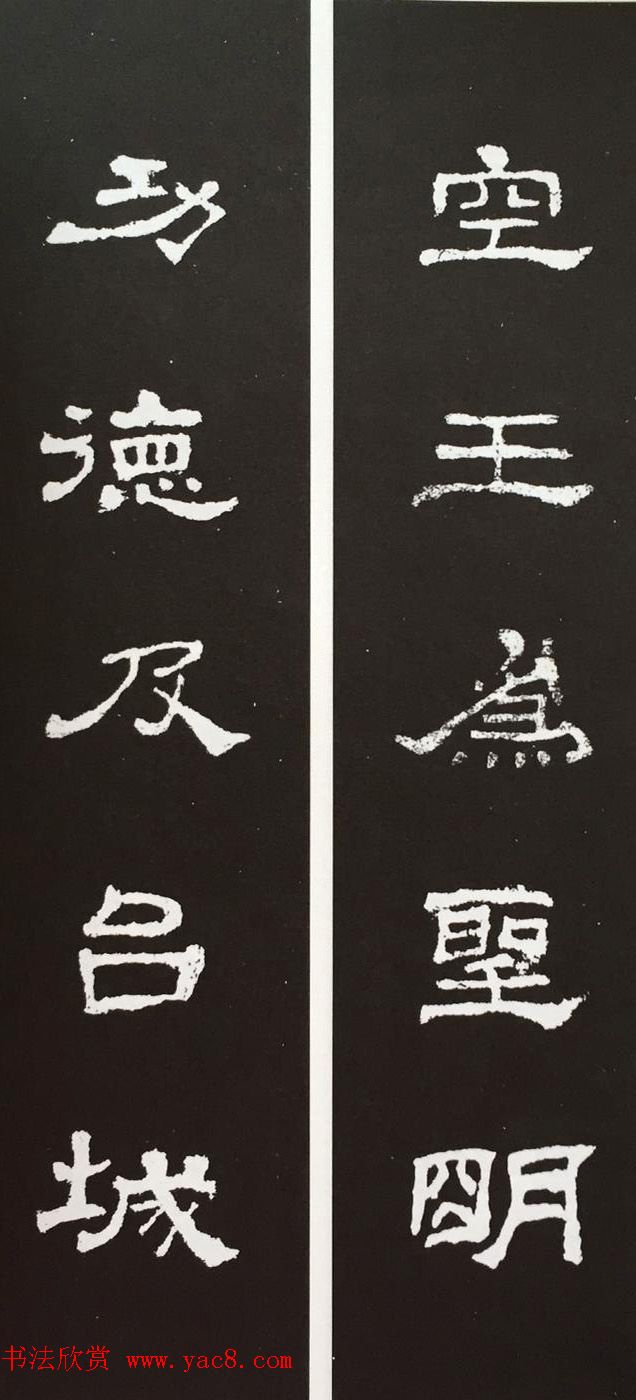 空王為聖明
功德及呂城
书法欣赏 www.yac8.com